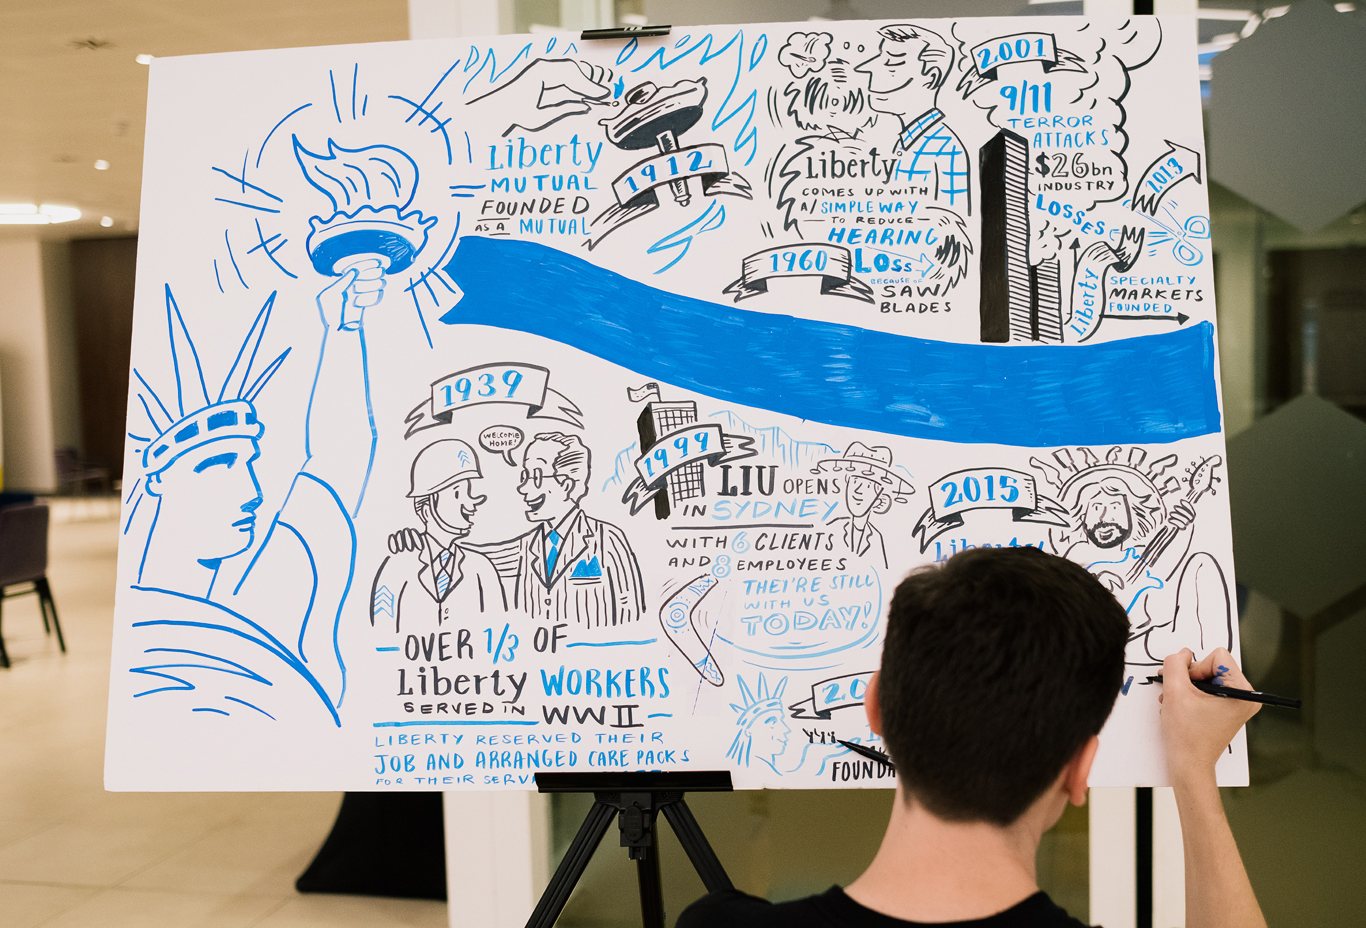 Liberty
MUTUAL
FOUNDED
AS A MUTUAL
1912
Liberty
COMES UP WITH
A/ SIMPLE WAY
TO REDUCE
HEARING
LOSS
BECAUSE OF
SAW
BLADES
1960
2001
9/11
TERROR
ATTACKS
$26bn
INDUSTRY
LOSSES
2013
Liberty
SPECIALTY
MARKETS
FOUNDED
1939
WELCOME
HOME!
OVER 1/3 OF
Liberty WORKERS
SERVED IN WWII
LIBERTY RESERVED THEIR
JOB AND ARRANGED CARE PACKS
FOR THEIR
1999
LIU OPENS
IN SYDNEY
WITH 6 CLIENTS
AND 8 EMPLOYEES
THEY'RE STILL
WITH US
TODAY!
2015
Liberty